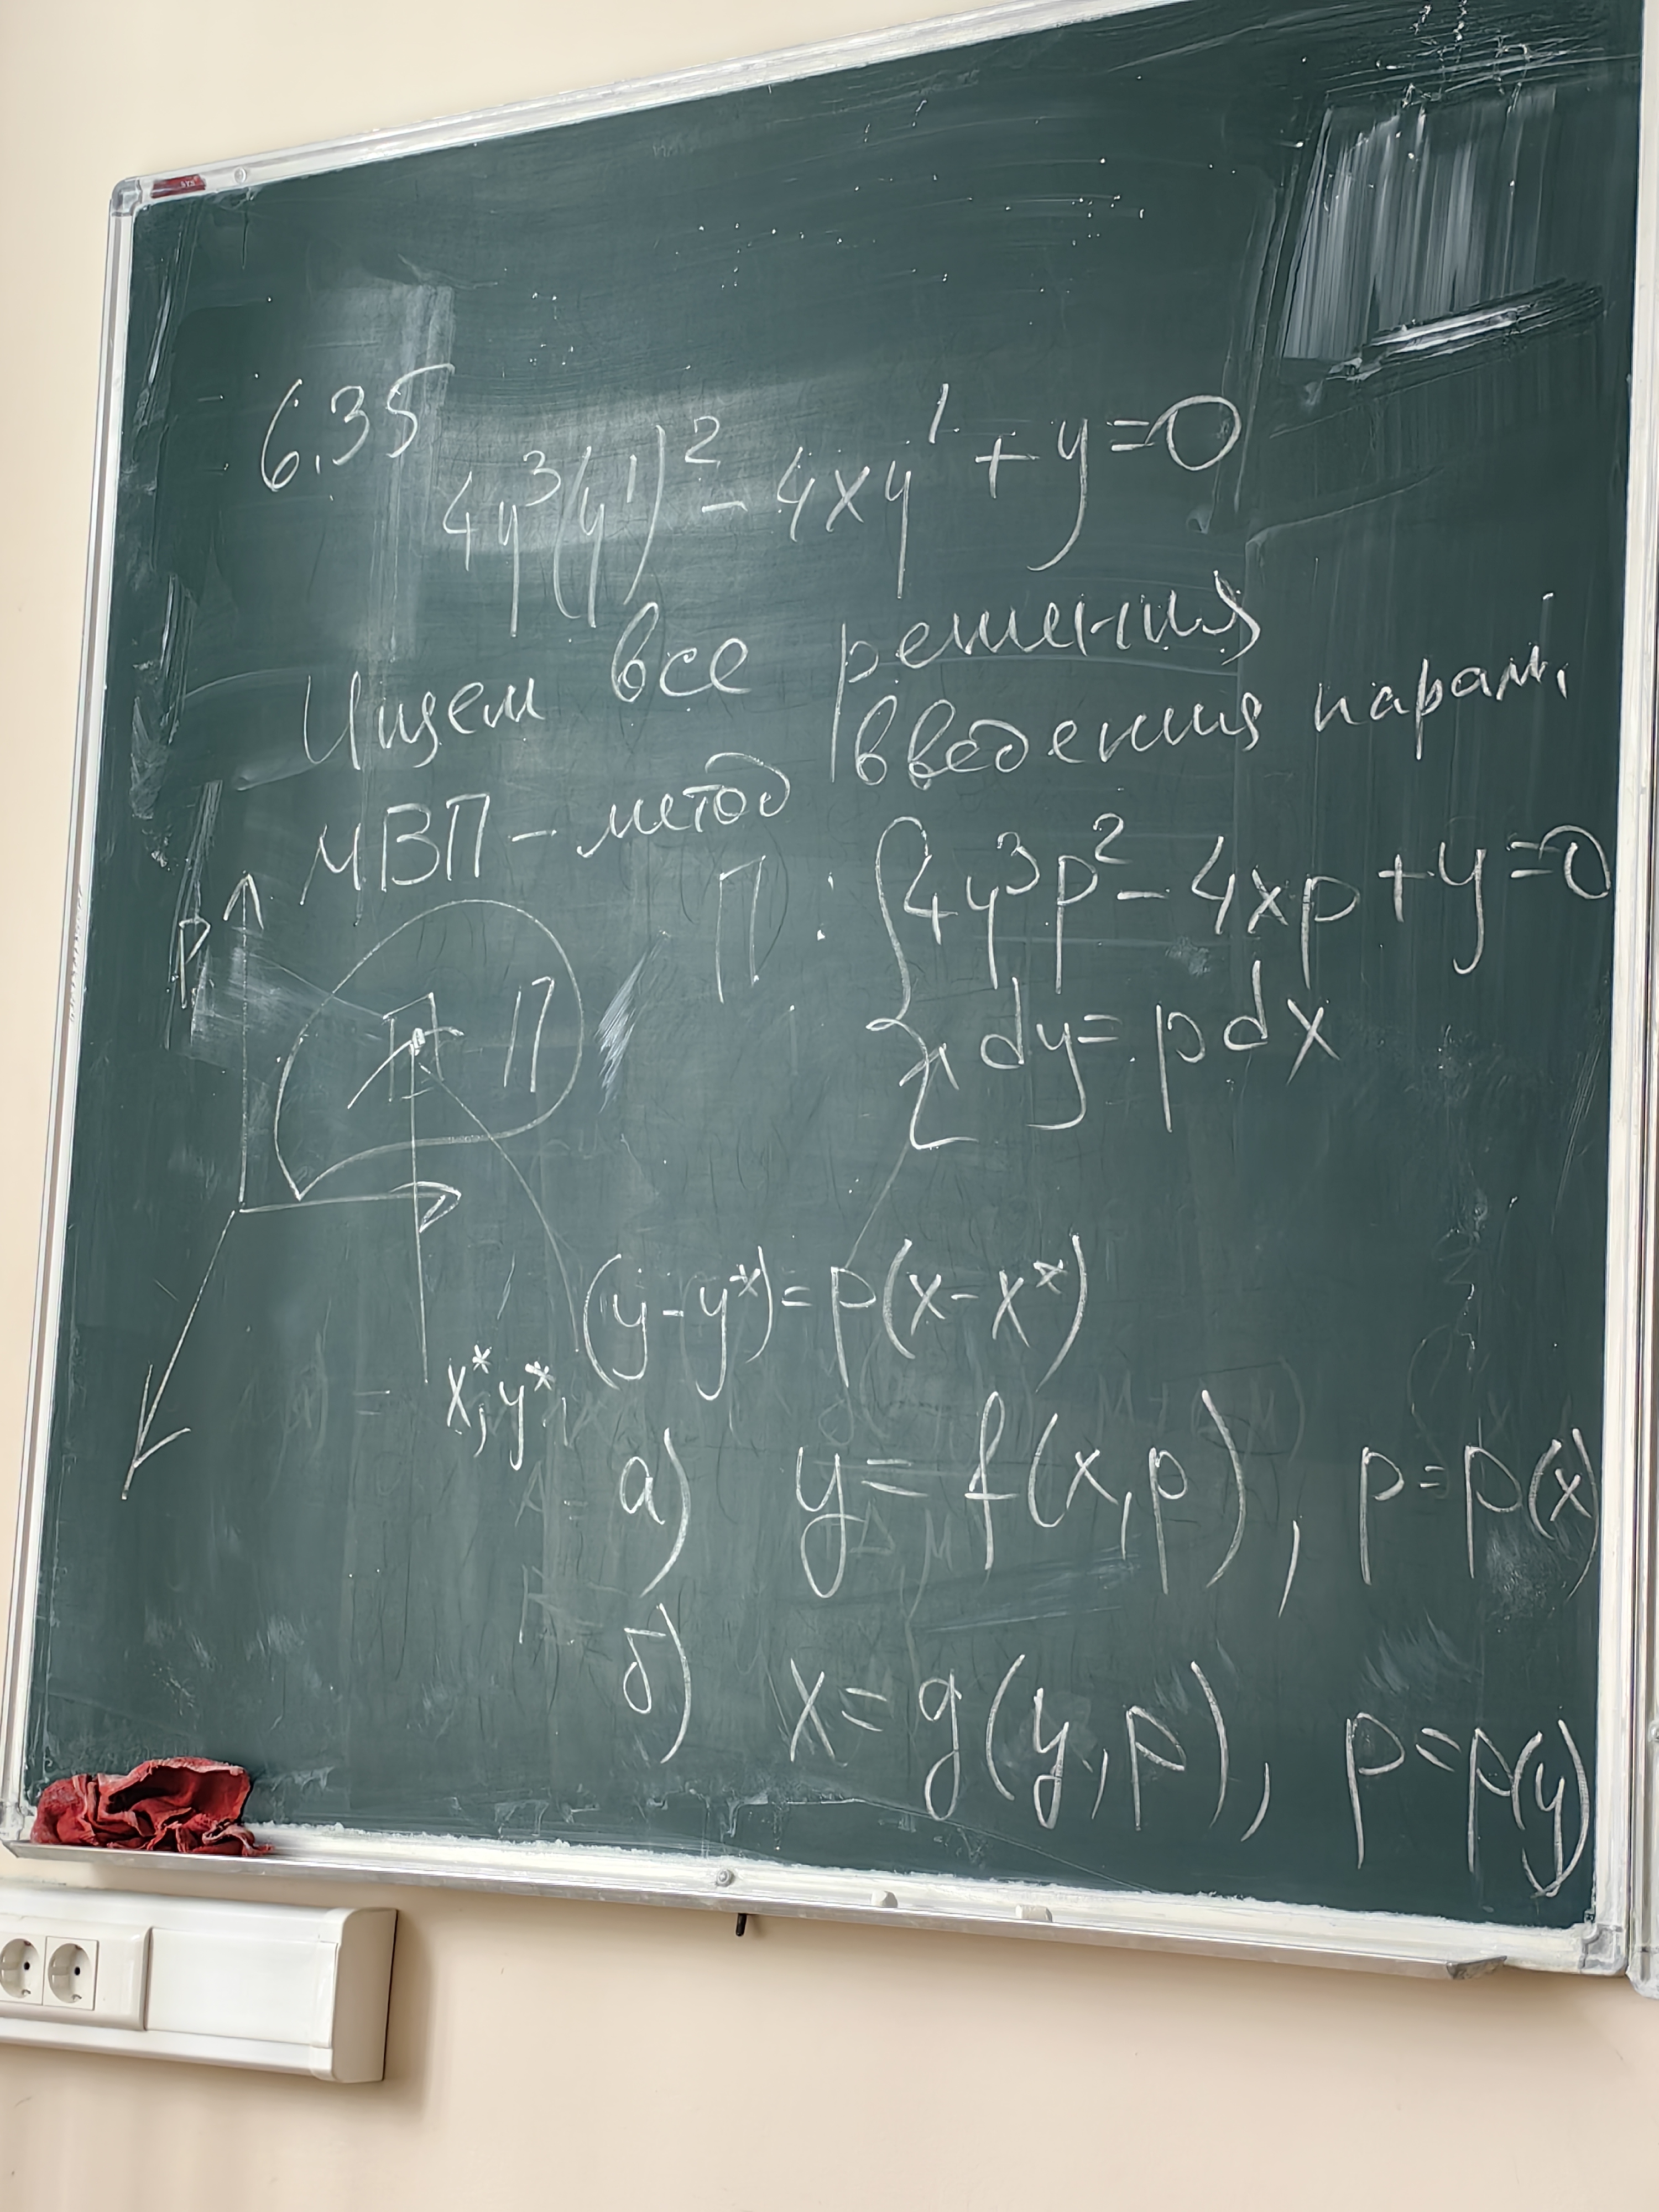 6.35
4y³(y')² - 4xy' + y = 0
Ищем все решения
МВП - метод введения парам.
П : { 4y³p² - 4xp + y = 0
dy = pdx
p
П
(y - y*) = p(x - x*)
x*, y*
а) y = f(x, p), p = p(x)
б) x = g(y, p), p = p(y)